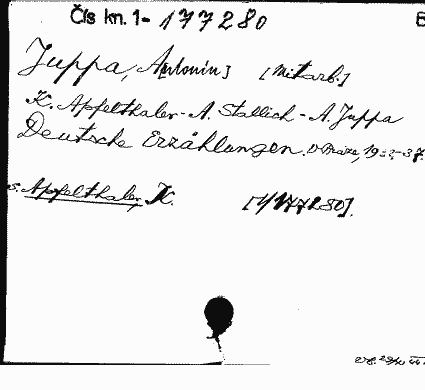 Čís kn. 1- 177280
Juppa, A[ntonín] [Mitarb.]
K. Apfelthaler - A. Stallich - A. Juppa
Deutsche Erzählungen. V Praze, 19 -37.
s. Apfelthaler, K. [1/177280].